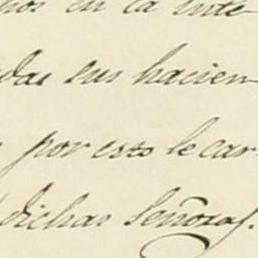 nos en la inte
das sus hacien-
por esto le car-
dichas Señoras.